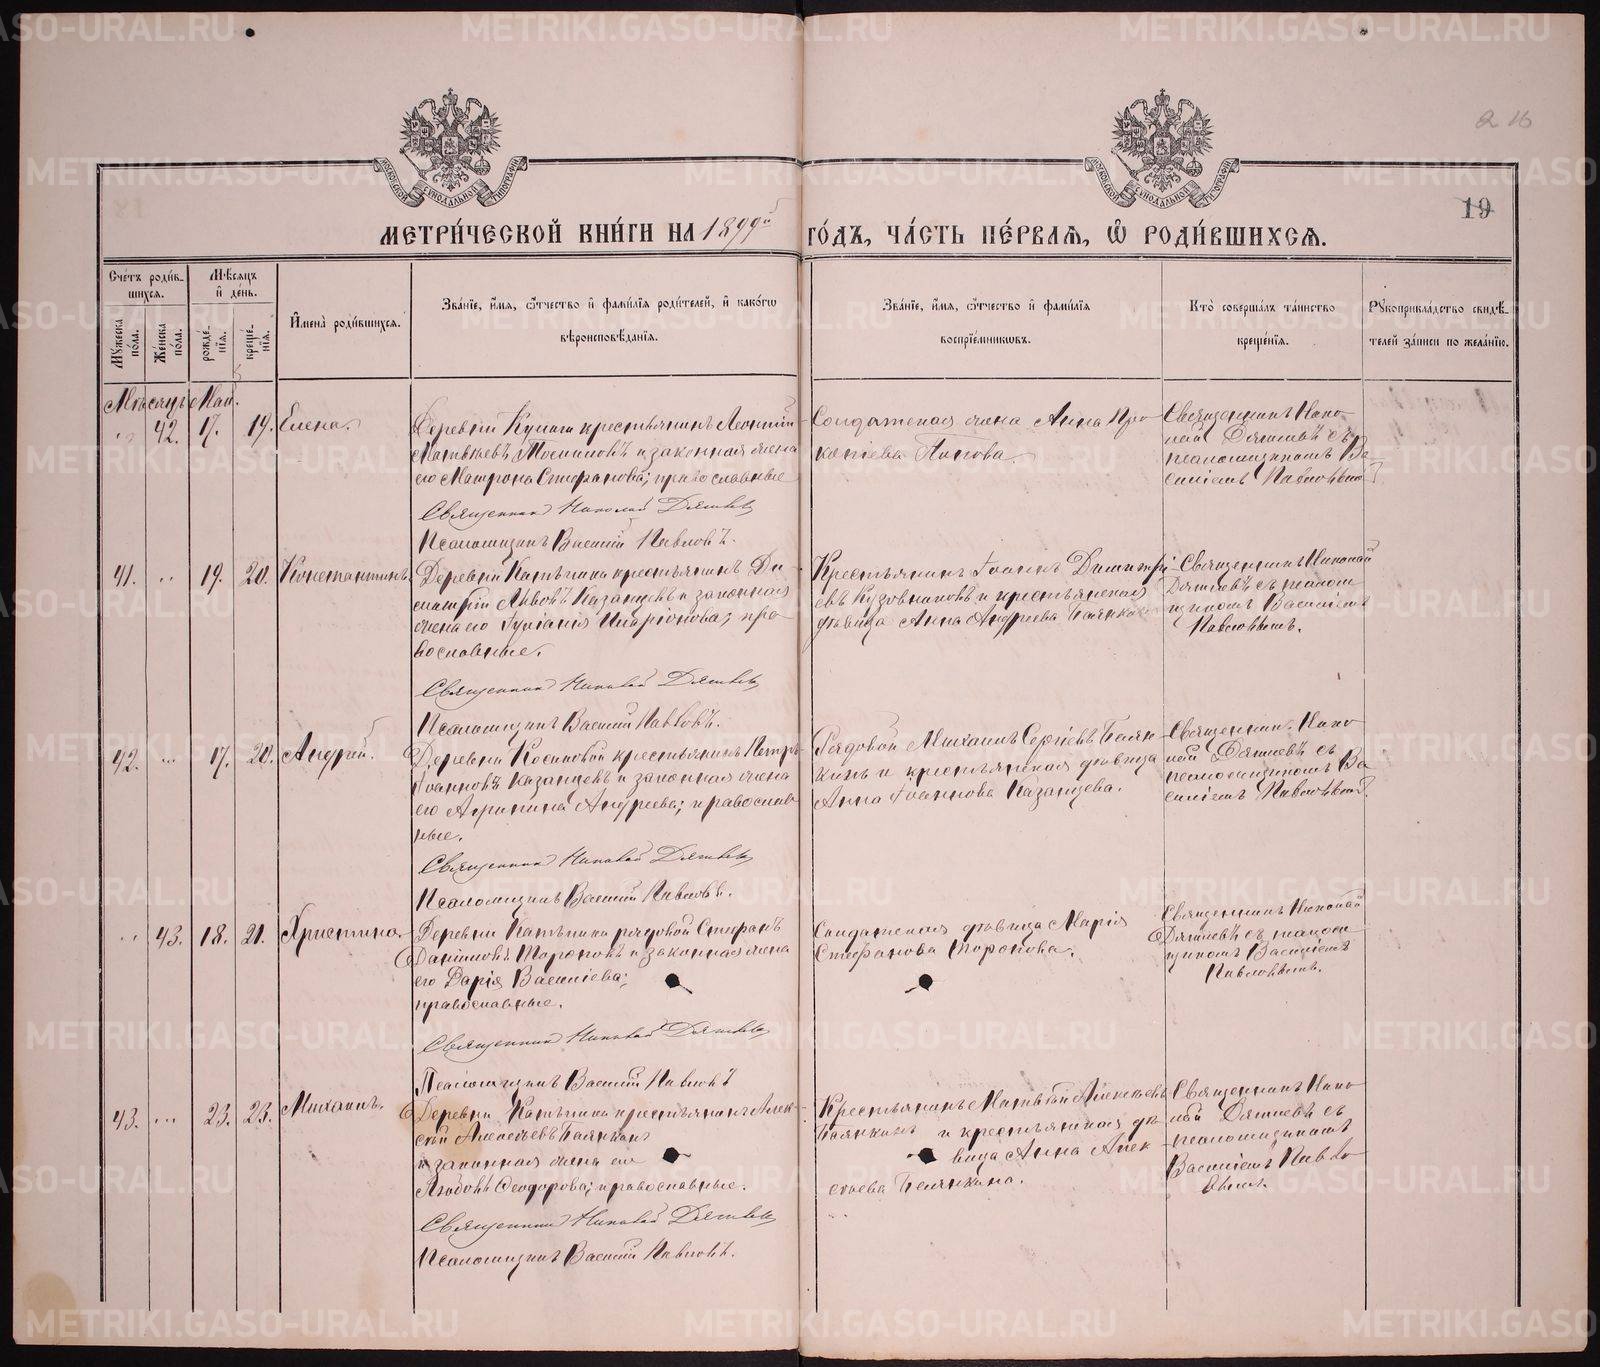 METRIKI.GASO-URAL.RU
216
19
МОСКОВСКОЙ СѴНОДАЛЬНОЙ ТИПОГРАФІИ
МОСКОВСКОЙ СѴНОДАЛЬНОЙ ТИПОГРАФІИ
МЕТРИ́ЧЕСКОЙ КНИ́ГИ НА 1899й ГО́ДЪ, ЧА́СТЬ ПЕ́РВАѦ, Ѡ҆ РОДИ́ВШИХСѦ.
Сче́тъ роди́в-
шихся.
Мѣ́сяцъ
и҆ де́нь.
Мꙋ́жеска
по́ла.
Же́нска
по́ла.
рожде́-
нїя.
креще́-
нїя.
И҆мена̀ роди́вшихся.
Зва́нїе, и҆́мя, ѻ҆́тчество и҆ фами́лїя роди́телей, и҆ како́гѡ
вѣроисповѣ́данїя.
Зва́нїе, и҆́мя, ѻ҆́тчество и҆ фами́лїя
воспрїе́мникѡвъ.
Кто̀ соверша́лъ та́инство
креще́нїя.
Рꙋкоприкла́дство свидѣ́-
телей за́писи по жела́нїю.
Мѣсяцъ Май.
" 42. 17. 19. Елена.
Деревни крестьянинъ Леонтій
Матвѣевъ и законная жена
его Матрона Стефанова; православные
Священник Николай
Псаломщикъ Василій Павловъ.
Солдатская жена Анна Про-
копіева Попова.
Священникъ Нико-
лай съ
псаломщикомъ Ва-
силіемъ Павловымъ
41. " 19. 20. Константинъ.
Деревни крестьянинъ Ди-
митрій Львовъ Казанцевъ и законная
жена его Іуліанія Иларіонова; пра-
вославные.
Священник Николай
Псаломщикъ Василій Павловъ.
Крестьянинъ Іоаннъ Димитрі-
евъ Кузовниковъ и крестьянская
дѣвица Анна Андреева
Священникъ Николай
съ псалом-
щикомъ Василіемъ
Павловымъ.
42. " 17. 20. Андрей.
Деревни крестьянинъ Петръ
Іоанновъ Казанцевъ и законная жена
его Агрипина Андреева; православ-
ные.
Священник Николай
Псаломщикъ Василій Павловъ.
Рядовой Михаилъ Сергіевъ Балян-
кинъ и крестьянская дѣвица
Анна Іоаннова Казанцева.
Священник. Нико-
лай съ
псаломщикомъ Ва-
силіемъ Павловымъ.
" 43. 18. 21. Христина.
Деревни рядовой Стефанъ
Даніиловъ Тороповъ и законная жена
его Дарія Василіева;
православные.
Священник Николай
Псаломщикъ Василій Павловъ
Солдатская дѣвица Марія
Стефанова Торопова.
Священникъ Николай
съ псалом-
щикомъ Василіемъ
Павловымъ.
43. " 23. 23. Михаилъ.
Деревни крестьянинъ Алек-
сѣй Алексѣевъ Балянкинъ
и законная жена его
Любовь Ѳеодорова; православные.
Священник Николай
Псаломщикъ Василій Павловъ.
Крестьянинъ Матвѣй Алексѣевъ
Балянкинъ и крестьянская дѣ-
вица Анна Алек-
сѣева Балянкина.
Священникъ Нико-
лай съ
псаломщикомъ
Василіемъ Павло-
вымъ.